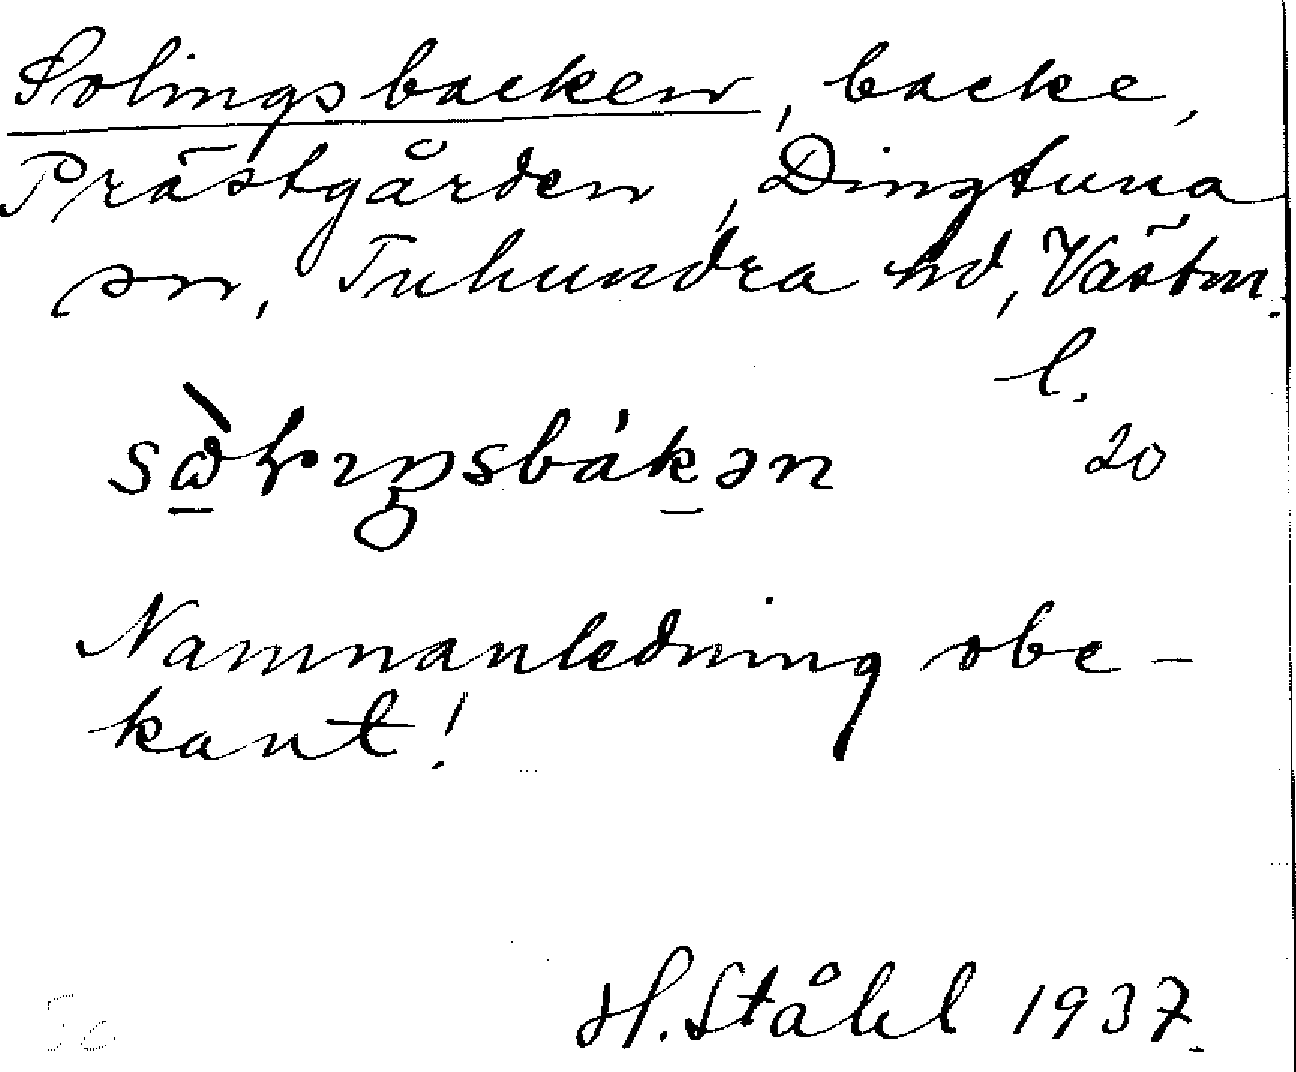 Solingsbacken, backe,
Prästgården, Dingtuna
sn, Tuhundra hd, Västm.
l.
20
Namnanledning obe-
kant!
H. Ståhl 1937.